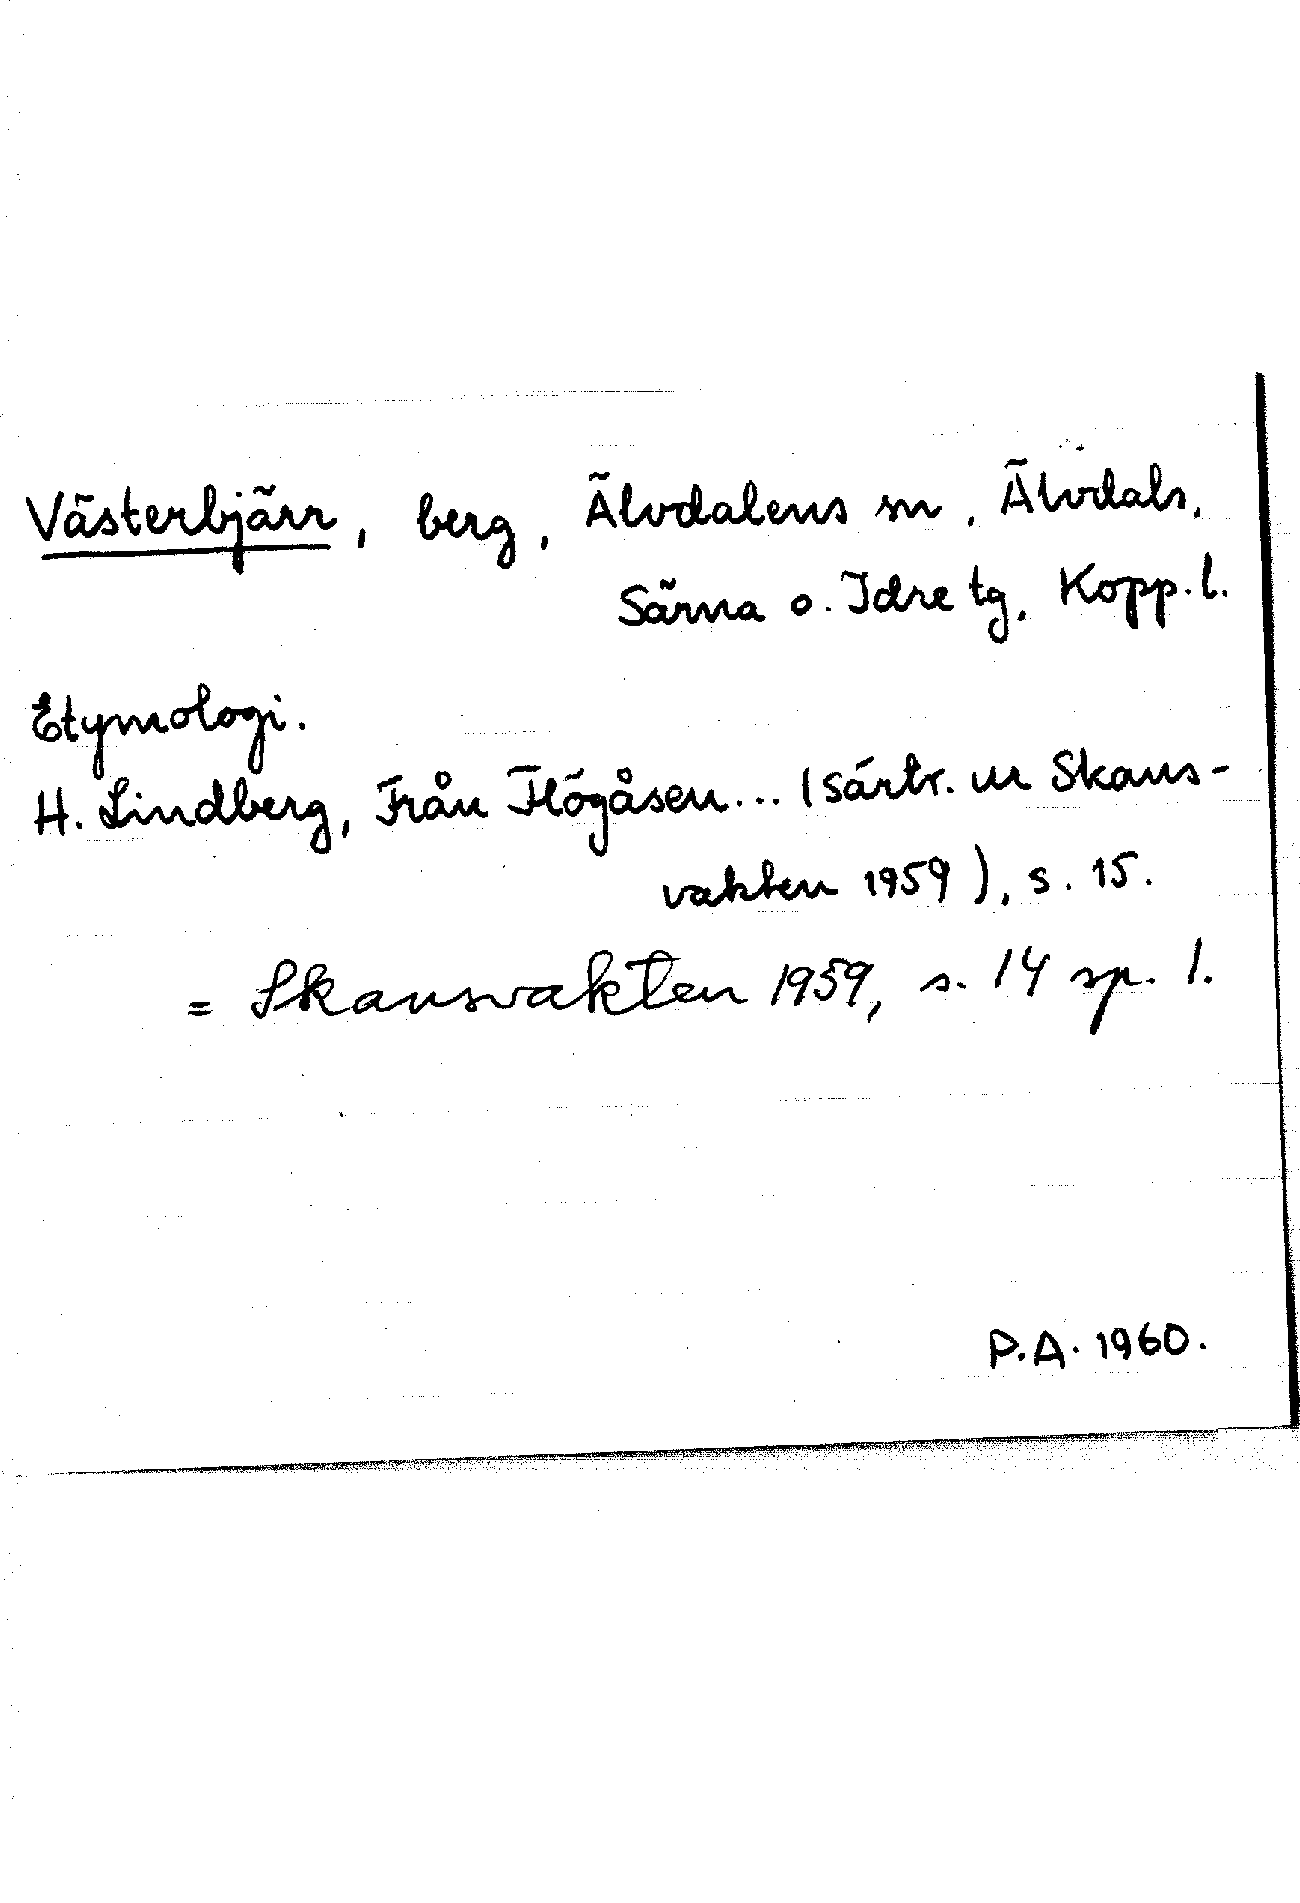 Västerbjärr, berg, Älvdalens sn, Älvdals,
Särna o. Idre tg, Kopp. l.
Etymologi.
H. Lindberg, Från Flögåsen... (särtr. ur Skans-
vakten 1959), s. 15.
= Skansvakten 1959, s. 14 sp. 1.
P.A. 1960.